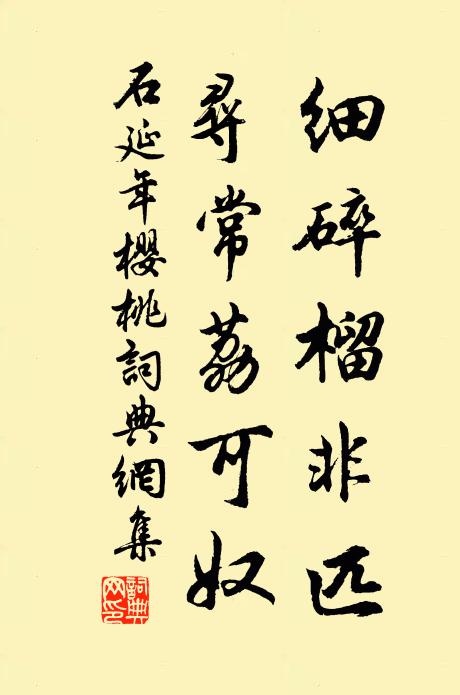 細碎榴非匹
尋常荔可奴
石延年櫻桃詞典網集
詞典網印